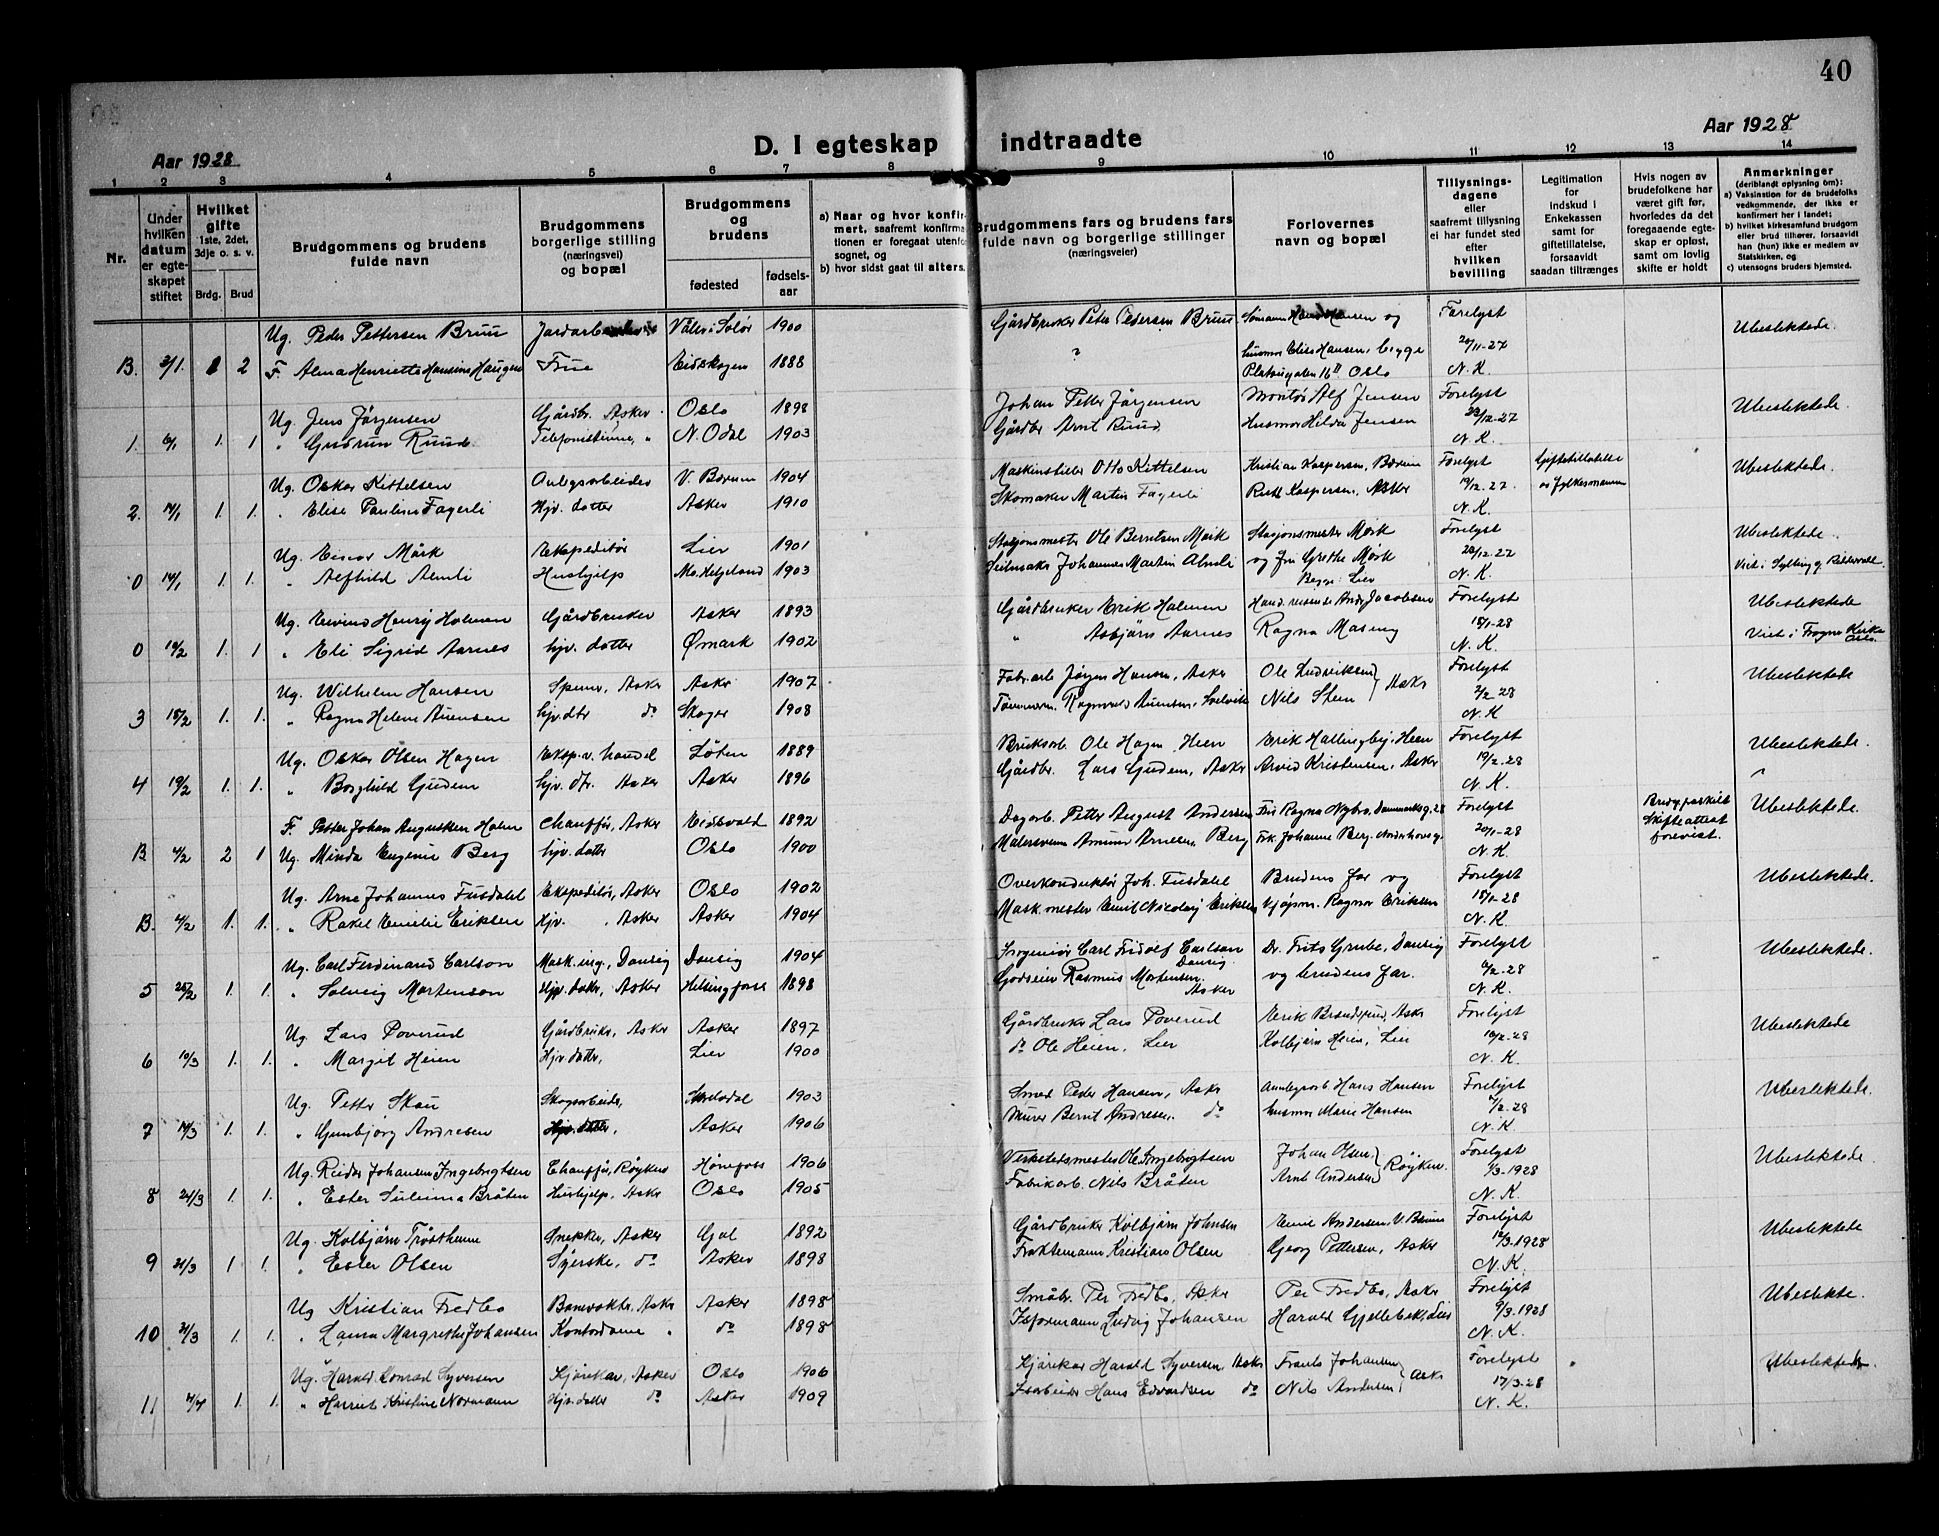 40
D. I egteskap indtraadte
Aar 1928
Aar 1928
1 2 3 4 5 6 7 8 9 10 11 12 13 14
Nr.
Under hvilken datum er egteskapet stiftet
Hvilket gifte 1ste, 2det, 3dje o. s. v.
Brdg. Brud
Brudgommens og brudens fulde navn
Brudgommens borgerlige stilling (næringsvei) og bopæl
Brudgommens og brudens
fødested
fødselsaar
a) Naar og hvor konfirmert, saafremt konfirmationen er foregaat utenfor sognet, og
b) hvor sidst gaat til alters.
Brudgommens fars og brudens fars fulde navn og borgerlige stillinger (næringsveier)
Forlovernes navn og bopæl
Tillysningsdagene eller saafremt tillysning ei har fundet sted efter hvilken bevilling
Legitimation for indskud i Enkekassen samt for giftetillatelse, forsaavidt saadan tiltrænges
Hvis nogen av brudefolkene har været gift før, hvorledes da det foregaaende egteskap er opløst, samt om lovlig skifte er holdt
Anmerkninger (deriblandt oplysning om): a) Vaksination for de brudefolks vedkommende, der ikke er konfirmert her i landet; b) hvilket kirkesamfund brudgom eller brud tilhører, forsaavidt han (hun) ikke er medlem av Statskirken, og c) utensogns bruders hjemsted.
Ug. Peder Pettersen Bruu Våler i Solør 1900 Gårdbruker Peter Pedersen Bruu og Forelyst Ubeslektede.
B. 3/1. 2 F. Alma Henriette Hansine Haugen Frue Eidskogen 1888 ? husmor Elise Hansen, begge 20/11-27
Platougaten 16 II Oslo N. K.
Ug. Jens Jørgensen Gårdbr. Asker Oslo 1898 Johan Petter Jørgensen Montør Alf Jensen Forelyst Ubeslektede.
1. 6/1 1. 1 " Gudrun Ruud Telefonistinne, " N. Odal 1903 Gårdbr Arnt Ruud, Husmor Hilda Jensen 23/12-27
N. K.
Ug. Oskar Kittelsen Anlegsarbeider V. Bærum 1904 Maskinstiller Otto Kittelsen Kristian Kaspersen, Bærum Forelyst Giftetillatelse Ubeslektede.
2. 14/1 1. 1. " Elise Pauline Fagerli Hjv. datter Asker 1910 Skomaker Martin Fagerli Ruth Kaspersen, Asker 19/12-27. av fylkesmannen
N. K.
Ug. Einar Mørk Ekspeditør Lier 1901 Stasjonsmester Ole Berntsen Mørk Stasjonsmester Mørk Forelyst Ubeslektede.
0 14/1 1. 1. Hushjelp Mo. Helgeland 1903 Johannes Martin og fru Grethe Mørk 28/12-27 Viet i Sylling
Begge: Lier N. K.
Ug. Eivind Henry Holmen Gårdbruker Asker 1893 Gårdbruker Erik Holmen Hand. reisende Jacobsen Forelyst Ubeslektede
0 10/2 1. 1 " Eli Sigrid Aarnes hjv. datter Ømark 1902 " Asbjørn Aarnes Ragna 15/1-28 Viet i Frogner Kirke Oslo.
N. K.
Ug. Wilhelm Hansen Asker Asker 1907 Fabr. arb Jørgen Hansen, Asker Ole Ludviksen Forelyst Ubeslektede
3 15/2 1. 1. " Ragna Helene hjv. dtr do Skoger 1908 Nils Steen } Asker 2/2. 28
N. K
Ug. Oskar Olsen Hagen Eksp. v. handel Løten 1889 Bruksarb. Ole Hagen Heen Erik Hallingby, Heen Forelyst Ubeslektede.
4 19/2 1. 1. " Borghild Gjudem hjv. dtr. Asker Asker 1896 Gårdbr. Lars Gjudem, Asker Arvid Kristensen, Asker 19/2.28
N. K.
F. Petter Johan Augustsen Holm Chauffør, Asker Eidsvold 1892 Dagarb. Petter August Andersen Frk Ragna Nybro, Danmarksg. 28 Forelyst Brudg. fraskilt Skifteattest forevist. Ubeslektede.
B 4/2 2 1 Ug. Minda Eugenie Berg hjv. datter Oslo 1900 Malersvenn Arnesen, Berg Frk Johanne Berg 20/1-28
N. K.
Ug. Arne Johannes Fusdahl Ekspeditør, Asker Oslo 1902 Overkonduktør Joh. Fusdahl Brudens far og Forelyst Ubeslektede.
B. 4/2 1. 1. " Rakel Emilie Eriksen Hjv. , Asker Asker 1904 Mask. mester Emil Nicolay Eriksen Ragnar Eriksen 15/1-28
N. K.
Ug. Carl Ferdinand Carlson Mask. ing., Dansig Dansig 1904 Ingeniør Carl Fridolf Carlson Dansig. Dr. Frits Grube, Dansig Forelyst Ubeslektede.
5 25/2 1. 1. " Solveig Mortenson Hjv. datter, Asker Helsingfors 1898 Godseier Rasmus Mortensen, Asker og brudens far. 6/2.28
N. K.
Ug. Lars Poverud Gårdbruker, Asker Asker 1897 Gårdbruker Lars Poverud Erik Asker Forelyst Ubeslektede
6 10/3 1. 1. " Margit Heien Hjv. datter, Lier 1900 do Ole Heien, Lier Kolbjørn Heien, Lier 10/2.28
N. K.
Ug. Petter Skau Skogsarbeider, 1903 Smed Peder Hansen, Asker Anlegsarb Hans Hansen Forelyst Ubeslektede.
7 14/3 1. 1. " Gunbjørg Andresen Hjv. datter, Asker 1906 Murer Bernt Andresen, do husmor Marie Hansen 5/2.28
N. K.
Ug. Reidar Johansen Ingebrigtsen Chauffør, Røyken Hønefoss 1906 Verkstedsmester Ole Ingebrigtsen Johan Olsen Forelyst Ubeslektede.
8 24/3 1. 1. " Ester Bråten Hushjelp, Asker Oslo 1905 Fabrikarb. Nils Bråten Arnt Andersen } Røyken. 1/3.1928
N. K.
Ug. Kolbjørn Trøstheim Snekker, Asker Gol 1892 Gårdbruker Kolbjørn Johnsen Emil Andersen, V. Bærum Forelyst Ubeslektede
9 31/3 1. 1. " Ester Olsen Syerske, do Asker 1898 Fraktemann Kristians Olsen Georg Pettersen, Asker 12/3.1928
N. K.
Ug Kristian Fredbo Banevokter, Asker Asker 1898 Småbr. Per Fredbo, Asker Per Fredbo, Asker Forelyst Ubeslekte.
10 31/3 1. 1. " Laura Margrethe Johansen Kontordame " do 1898 Isformann Ludvig Johansen Harald Gjellebek, Lier 9/3.1928
N. K.
Ug. Harald Konrad Syversen Kjørekar, Asker Oslo 1906 Kjørekar Harald Syversen, Asker Frants Johansen Forelyst Ubeslektede.
11 1. 1. " Harriet Kristine Normann Hjv. datter do Asker 1909 Isarbeider Hans Edvardsen do Nils Andersen } Asker 17/3.28
N. K.